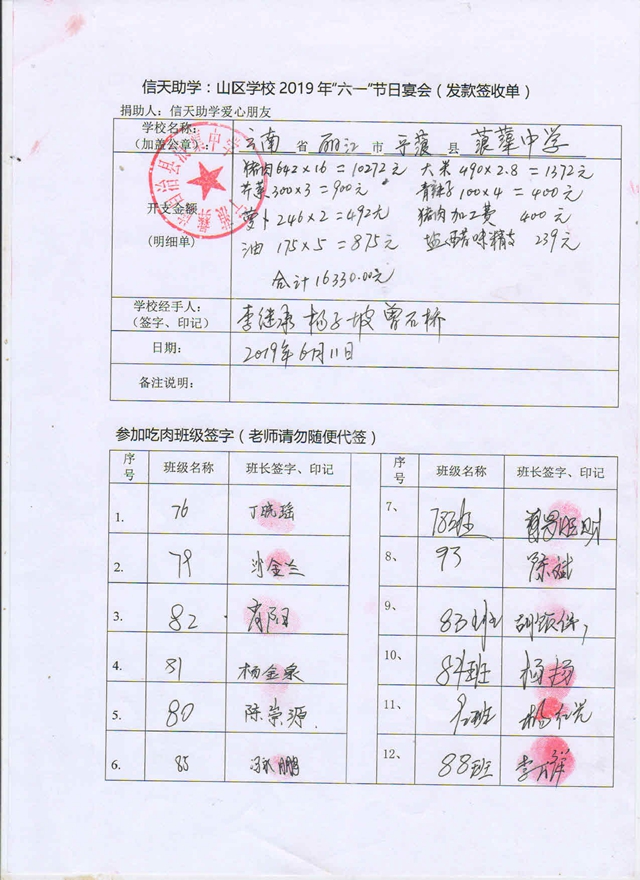 信天助学：山区学校2019年“六一”节日宴会（发款签收单）
捐助人：信天助学爱心朋友
学校名称：
（加盖公章）：
云南 省 丽江 市 宁蒗 县 蒗蕖中学
开支金额
(明细单)
猪肉642×16=10272元 大米490×2.8=1372元
300×3=900元 100×4=400元
萝卜246×2=492元 猪肉加工费 400元
油 175×5=875元 盐 醋 味精 239元
合计16330.00元
学校经手人：
（签字、印记）
李继承 杨子坡 曾石桥
日期：
2019年6月11日
备注说明：
参加吃肉班级签字（老师请勿随便代签）
序号 班级名称 班长签字、印记 序号 班级名称 班长签字、印记
1. 76 丁晓瑶 7、 783班
2. 79 沙金兰 8、 93 陈斌
3. 82 9、 83班
4. 81 杨金泉 10、 84班 杨
5. 80 陈崇源 11、 班 杨
6. 85 鹏 12、 88班 李